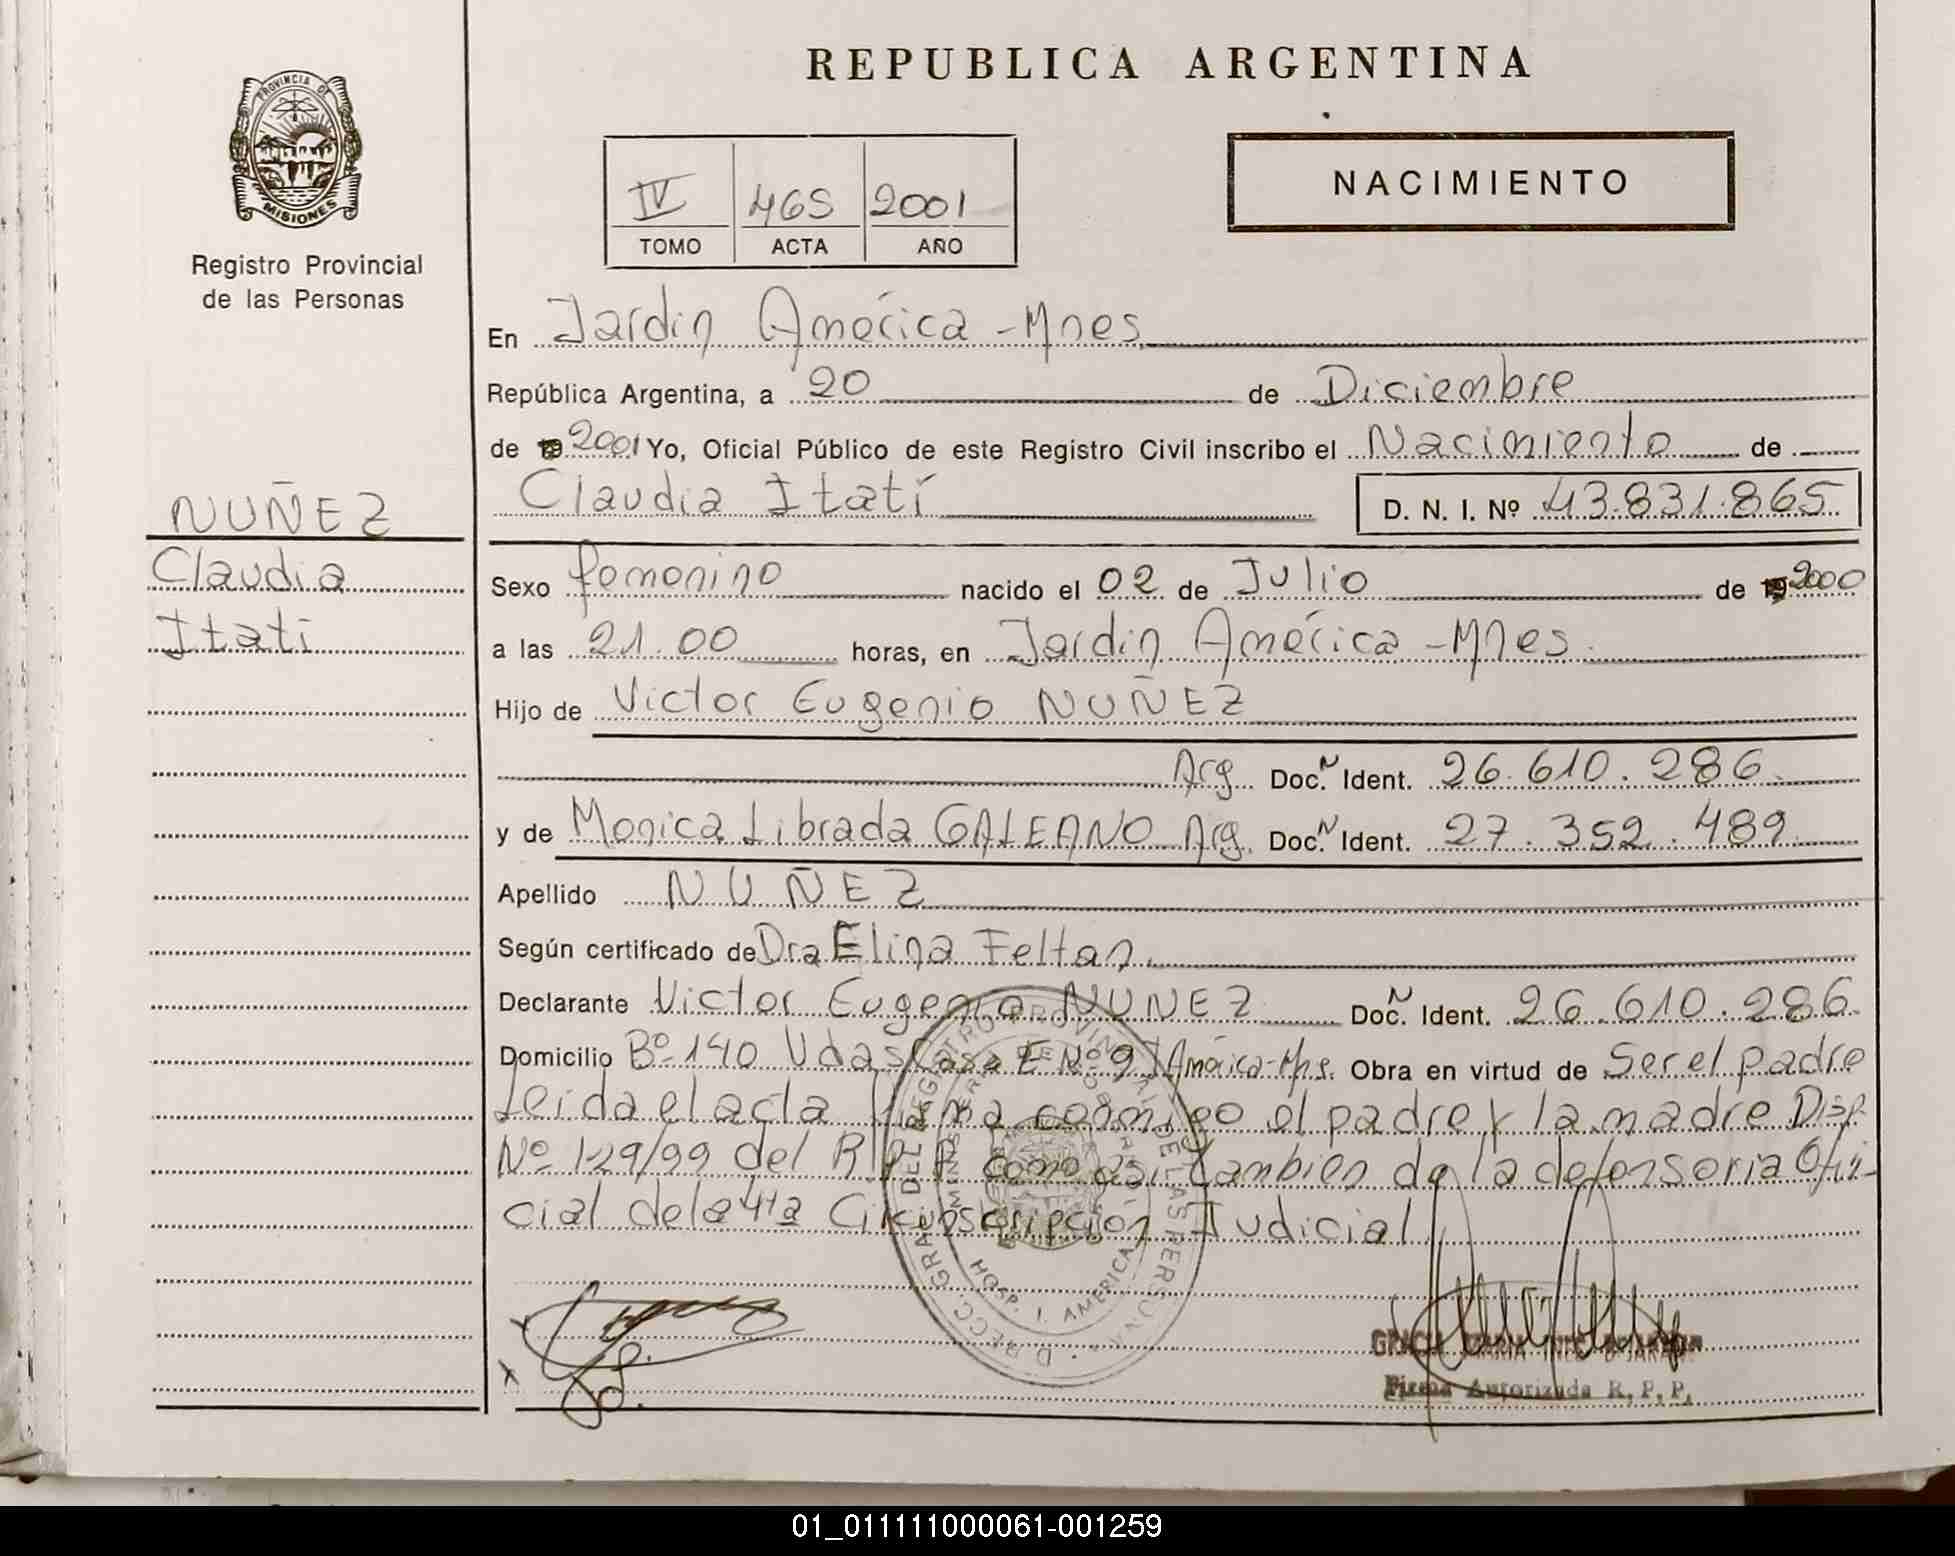 REPUBLICA ARGENTINA
PROVINCIA DE
MISIONES
Registro Provincial
de las Personas
IV 465 2001
TOMO ACTA AÑO
NACIMIENTO
En Jardín América - Mnes
República Argentina, a 20 de Diciembre
de 19 2001 Yo, Oficial Público de este Registro Civil inscribo el Nacimiento de
Claudia Itatí D. N. I. Nº 43.831.865
NUÑEZ
Claudia
Itati
Sexo femenino nacido el 02 de Julio de 19 2000
a las 21.00 horas, en Jardín América - Mnes.
Hijo de Victor Eugenio NUÑEZ
Arg. Doc.N Ident. 26.610.286
y de Monica Librada GALEANO Arg. Doc.N Ident. 27.352.489
Apellido NUÑEZ
Según certificado de Dra Elina Feltan.
Declarante Victor Eugenio NUNEZ Doc.N Ident. 26.610.286
Domicilio Bº 140 Vdas Casa E Nº 9 J América - Mns. Obra en virtud de Ser el padre
Leida el acta firma conmigo el padre y la madre Disp.
Nº 129/99 del R P P como asi tambien de la defensoria Ofi-
cial de la 4ta Circunscripcion Judicial
HOSP. J. AMERICA
Firma Autorizada R. P. P.
01_011111000061-001259